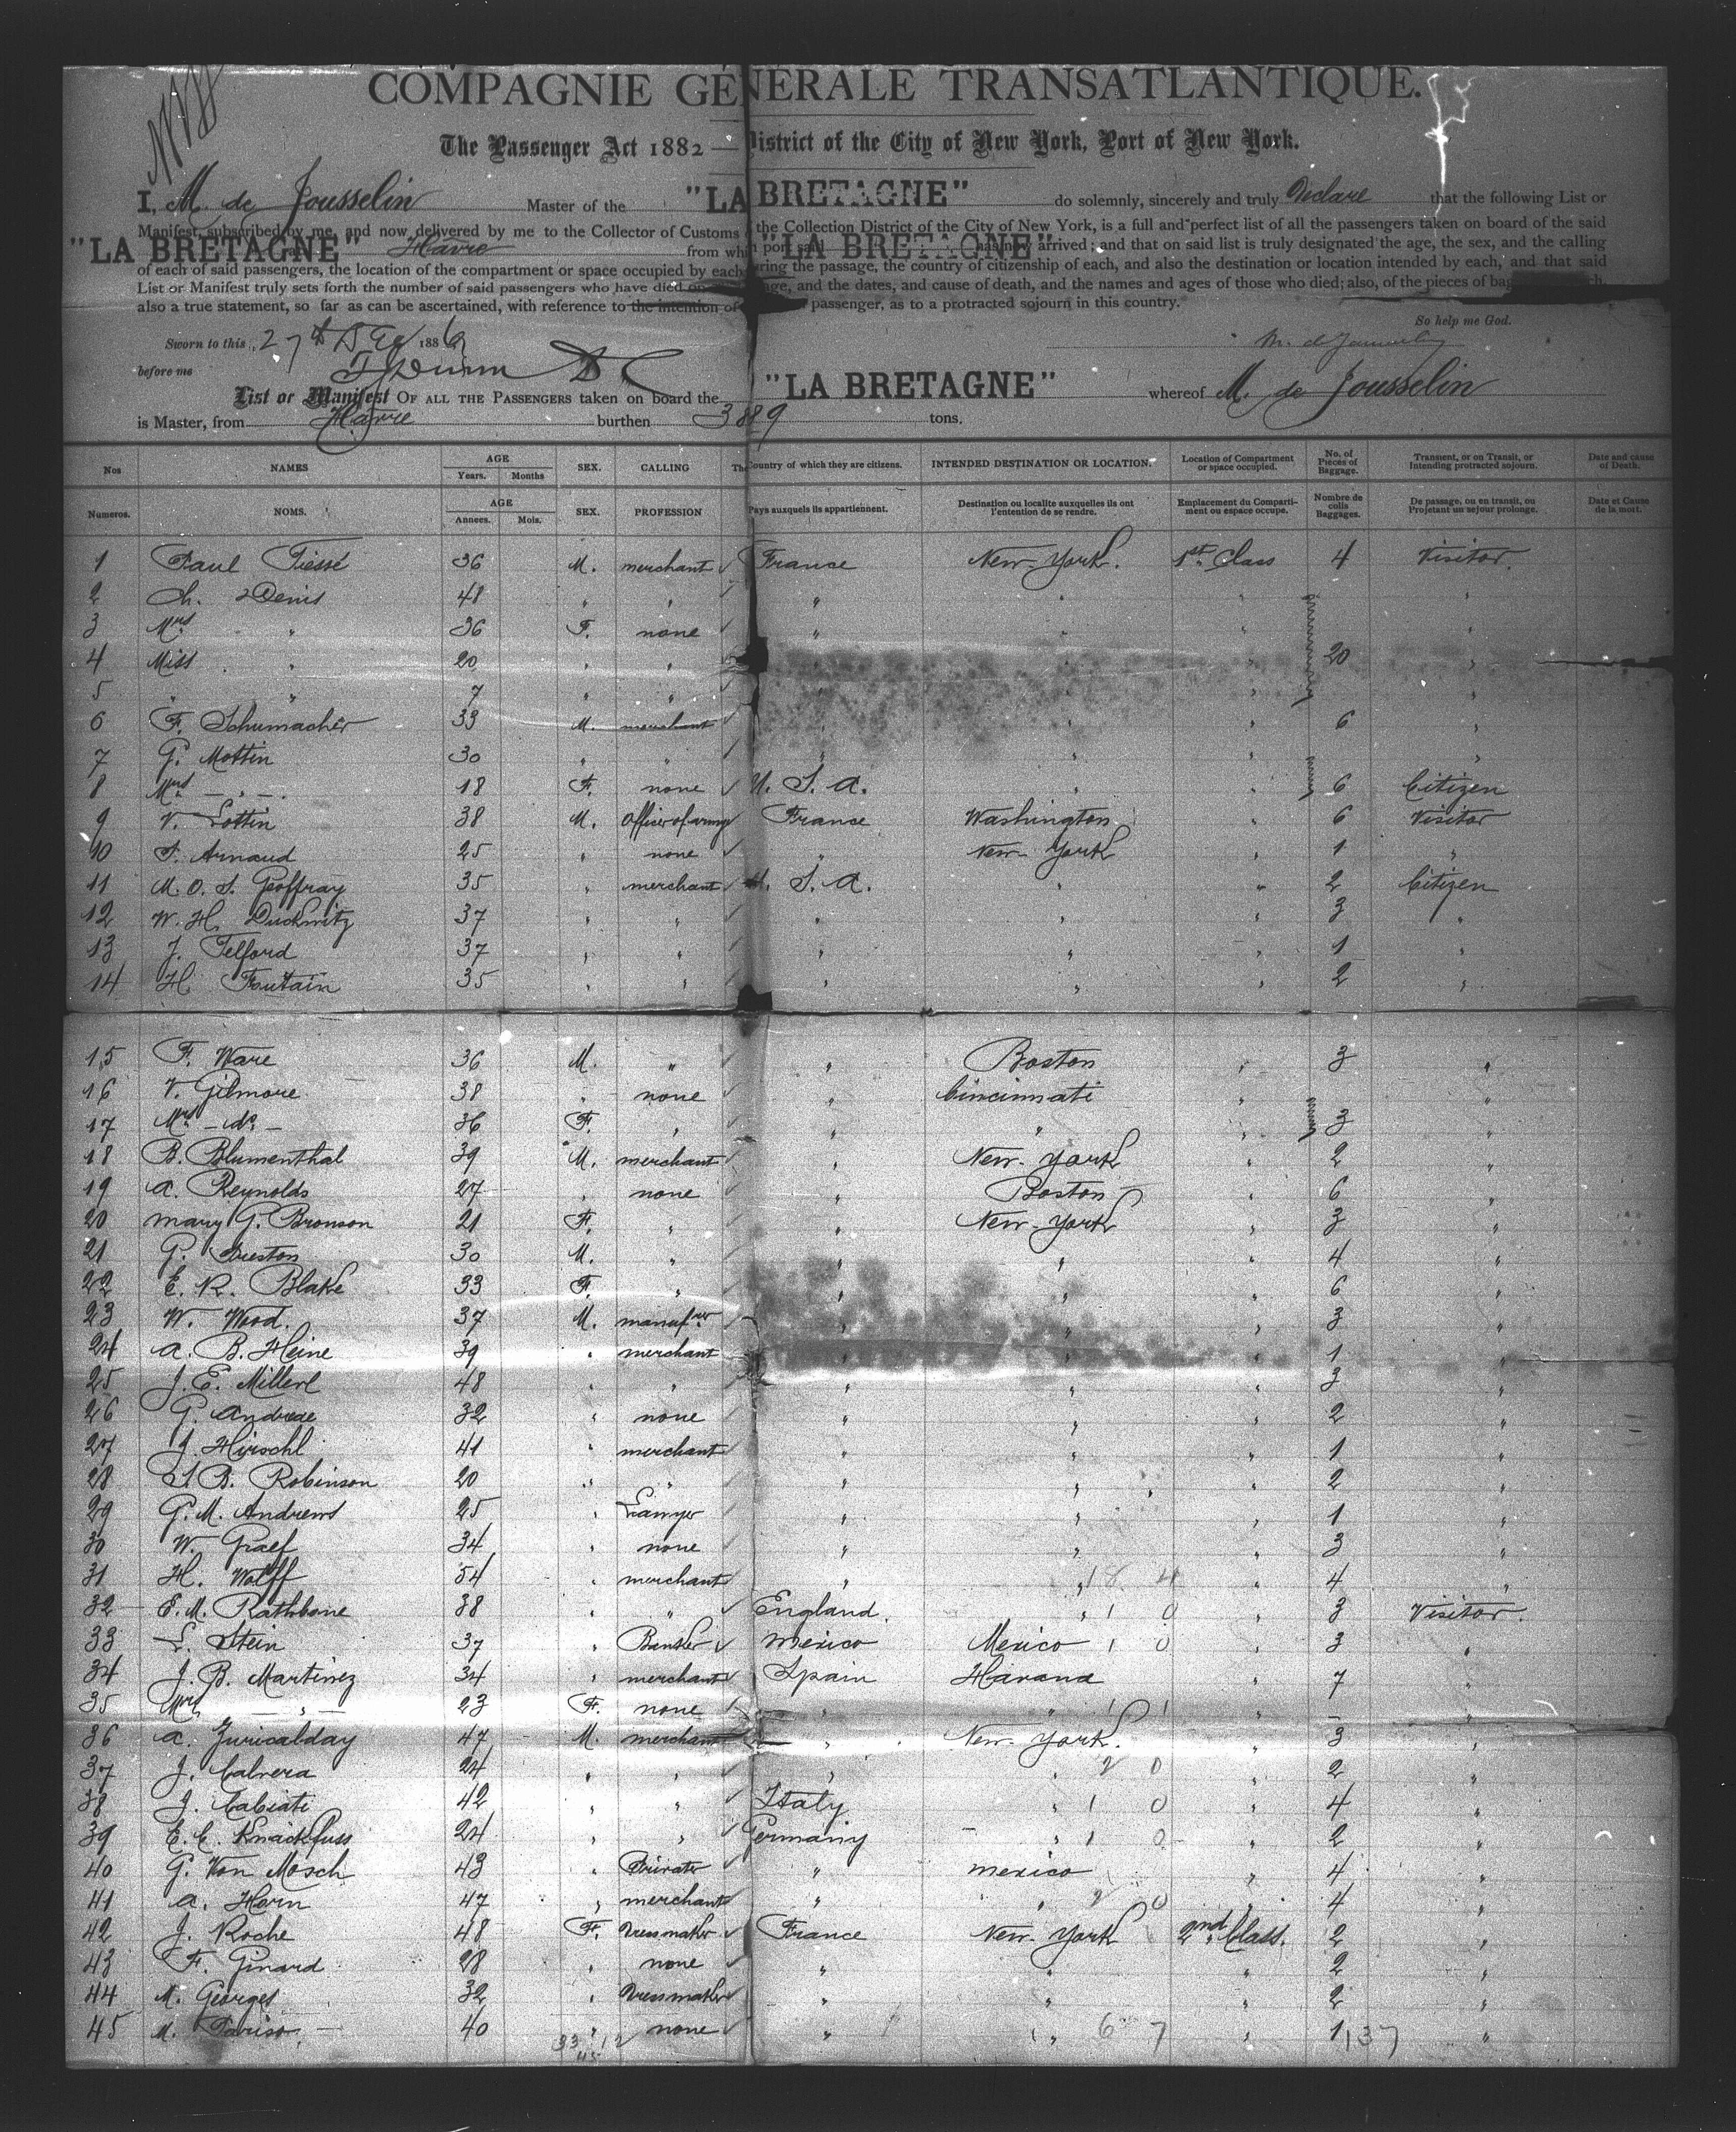 COMPAGNIE GÉNÉRALE TRANSATLANTIQUE.
The Passenger Act 1882 — District of the City of New York, Port of New York.
I, M. de Jousselin Master of the "LA BRETAGNE" do solemnly, sincerely and truly Declare that the following List or
Manifest, subscribed by me, and now delivered by me to the Collector of Customs the Collection District of the City of New York, is a full and perfect list of all the passengers taken on board of the said
"LA BRETAGNE" Havre from which port said "LA BRETAGNE" has now arrived; and that on said list is truly designated the age, the sex, and the calling
of each of said passengers, the location of the compartment or space occupied by each during the passage, the country of citizenship of each, and also the destination or location intended by each, and that said
List or Manifest truly sets forth the number of said passengers who have died on age, and the dates, and cause of death, and the names and ages of those who died; also, of the pieces of bag ch,
also a true statement, so far as can be ascertained, with reference to the intention of passenger, as to a protracted sojourn in this country.
So help me God.
Sworn to this 27th Dec 1886
before me
List or Manifest OF ALL THE PASSENGERS taken on board the "LA BRETAGNE" whereof M. de Jousselin
is Master, from Havre burthen 3889 tons.
Nos NAMES AGE Years. Months SEX. CALLING The Country of which they are citizens. INTENDED DESTINATION OR LOCATION. Location of Compartment or space occupied. No. of Pieces of Baggage. Transient, or on Transit, or Intending protracted sojourn. Date and cause of Death.
Numeros. NOMS. AGE Annees. Mois. SEX. PROFESSION Pays auxquels ils appartiennent. Destination ou localite auxquelles ils ont l'entention de se rendre. Emplacement du Compartiment ou espace occupe. Nombre de colis Baggages. De passage, ou en transit, ou Projetant un sejour prolonge. Date et Cause de la mort.
1 Paul Tiessé 36 M. merchant France New-York. 1st Class 4 Visitor.
2 Ch. Denis 48 " " " " " "
3 Mrs " 36 F. none " " " "
4 Miss " 20 " " " 20 "
5 " " 7 " " "
6 F. Schumacher 33 M. merchant " " 6 "
7 G. Mottin 30 " " " " " "
8 Mrs — " — 18 F. none U. S. A. " " 6 Citizen
9 V. Lottin 38 M. Officer of army France Washington " 6 Visitor
10 F. Arnaud 25 " none " New-York " 1 "
11 M. O. S. Geoffray 35 " merchant U. S. A. " " 2 Citizen
12 W. H. Duckwitz 37 " " " " " 3 "
13 J. Telford 37 " " " " " 1 "
14 H. Foutain 35 " " " " 2 "
15 F. Ware 36 M. " " Boston " 3 "
16 V. Gilmore 38 " none " Cincinnati " "
17 Mrs — do — 36 F. " " " " 3 "
18 B. Blumenthal 39 M. merchant " New-York " 2 "
19 A. Reynolds 27 " none " Boston " 6 "
20 Mary G. Bronson 21 F. " " New-York " 3 "
21 G. Preston 30 M. " " " " 4 "
22 E. R. Blake 33 F. " " " " 6 "
23 W. Wood. 37 M. manufrer " " " 3 "
24 A. B. Heine 39 " merchant " " " 1 "
25 J. E. Millerl 48 " " " " " 3 "
26 G. Andreae 32 " none " " " 2 "
27 J. Hirschl 41 " merchant " " " 1 "
28 S B. Robinson 20 " " " " " 2 "
29 G. M. Andrews 25 " Lawyer " " " 1 "
30 W. Graef 34 " none " " " 3 "
31 H. Wolff 54 " merchant " " 18 4 " 4 "
32 E. M. Rathbone 38 " " England. " 1 0 " 3 Visitor.
33 L. Stein 37 " Banker Mexico Mexico 1 0 " 3 "
34 J. B. Martinez 34 " merchant Spain Havana " 7 "
35 Mrs — " — 23 F. none " " 1 1 " – "
36 A. Zuricalday 47 M. merchant " New-York. " 3 "
37 J. Cabrera 24 " " " " 2 0 " 2 "
38 J. Cabiati 42 " " Italy " 1 0 " 4 "
39 E. C. Knackfuss 24 " " Germany " 1 0 " 2 "
40 G. Von Mosch 43 " Private " Mexico " 4 "
41 A. Horn 47 " merchant " " 2 0 " 4 "
42 J. Roche 48 F. Dressmaker France New-York 2nd Class. 2 "
43 F. Ginard 28 " none " " " 2 "
44 M. Georges 32 " Dressmaker " " " 2 "
45 M. Pariso — 40 " none " " 6 7 " 1 137 "
33 12
45